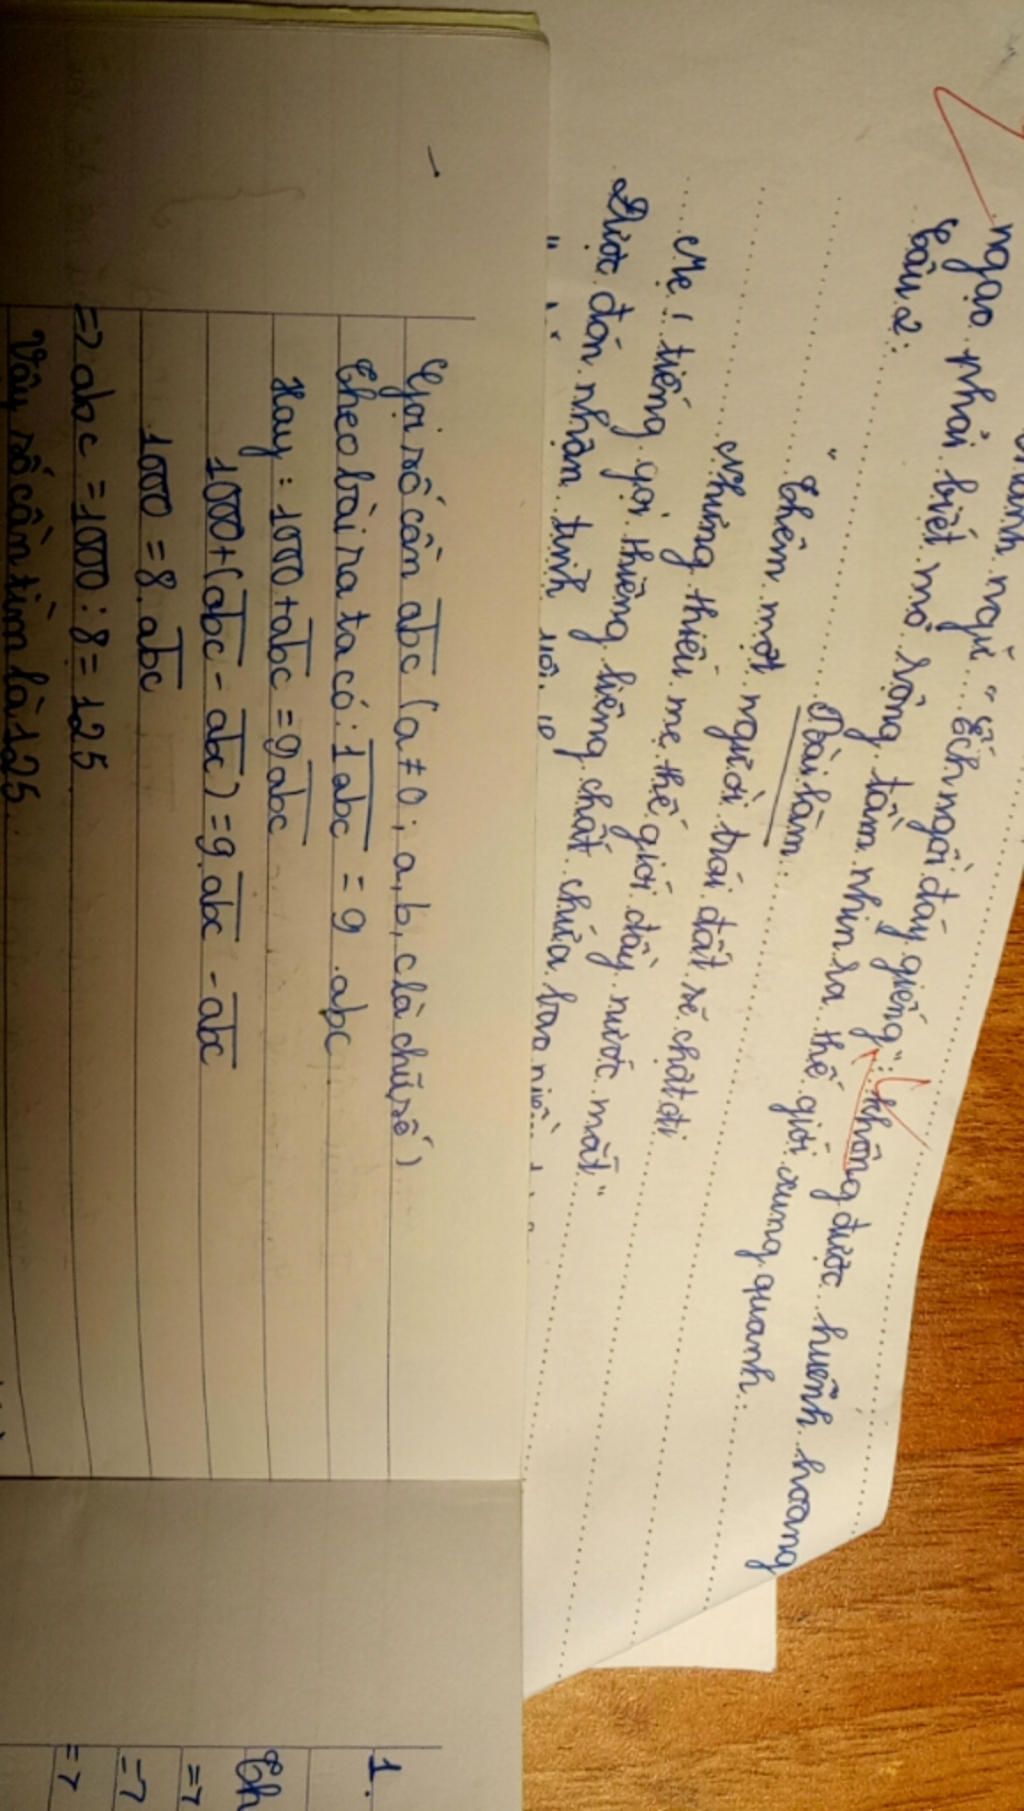 ngạo phải biết mở rộng tầm nhìn ra thế giới xung quanh.
"Ếch ngồi đáy giếng" không được huênh hoang
Câu 2:
Bài làm
"Thêm một người trái đất sẽ chật đi
Nhưng thiếu mẹ thế giới đầy nước mắt"
Mẹ, tiếng gọi thiêng liêng chất chứa bao
Được đón nhận tình
Gọi số cần abc (a ≠ 0; a, b, c là chữ số)
Theo bài ra ta có: 1abc = 9 . abc
Hay: 1000 + abc = 9 abc
1000 + (abc - abc) = 9 abc - abc
1000 = 8. abc
=> abc = 1000 : 8 = 125
Vậy số cần tìm là 125
1.
Th
=>
=>
=>